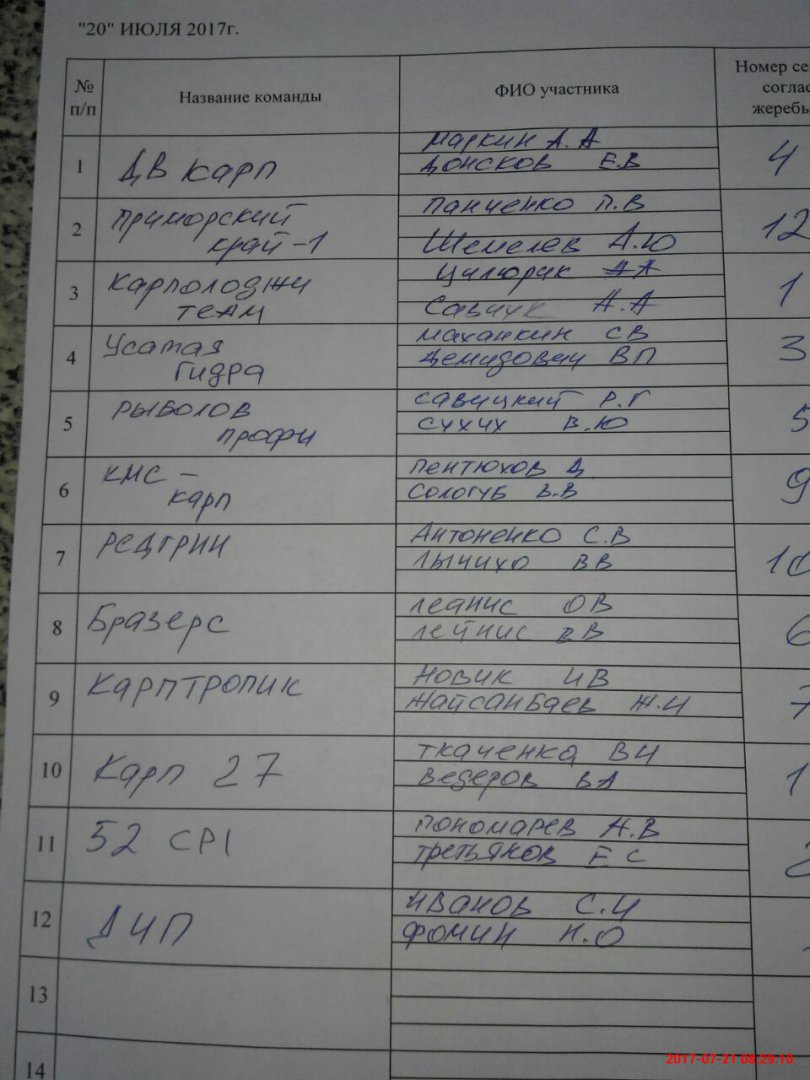 "20" ИЮЛЯ 2017г.
№ п/п Название команды ФИО участника Номер се
соглас
жеребь
1 ДВ карп Маркин А.А 4
Донсков Е.В
2 Приморский Панченко П.В 12
край-1 Шемелев А.Ю
3 Карпологжи Цилюрик 1
теам Савчук А.А
4 Усатая Маханкин СВ 3
гидра Демидович ВП
5 Рыболов Савицкий Р.Г 5
профи Сухих В.Ю
6 КМС - Пентюхов Д 9
карп Сологуб В.В
7 Редгрин Антоненко С.В 10
Лычихо ВВ
8 Бразерс Леанис ОВ 6
Лейнис ВВ
9 Карптропик Новик ИВ 7
Жайсанбаев Ж.И
10 Карп 27 Ткаченко ВИ 1
Ведеров ВА
11 52 CPI Пономарев А.В 2
Третьяков ЕС
12 ДИП Иванов С.И
Фомин Н.О
13
14
2017-07-21 08:29:16